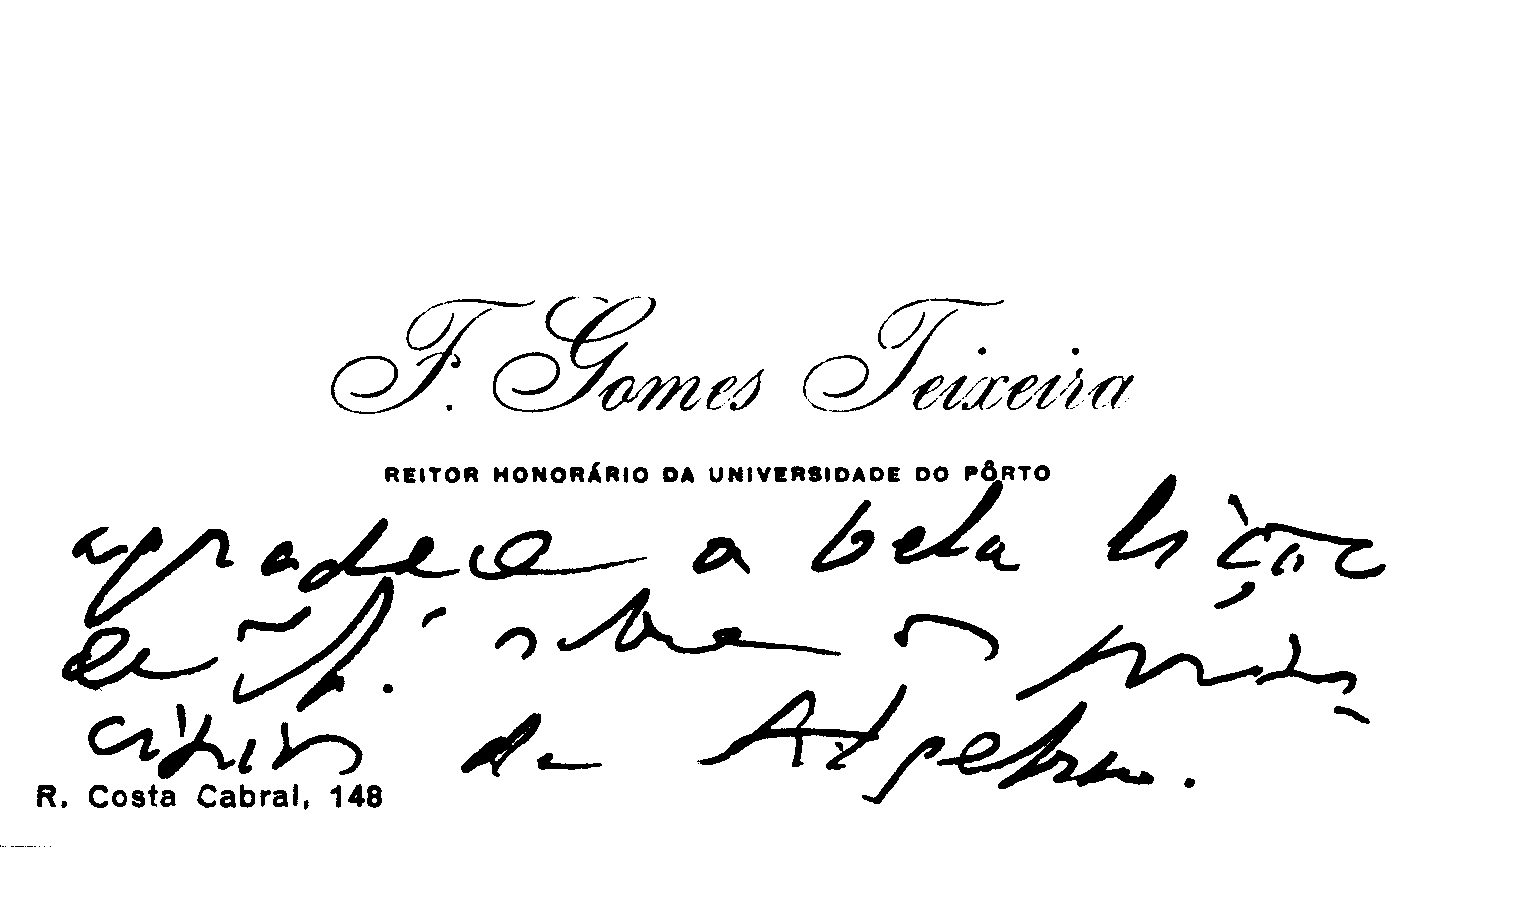 F. Gomes Teixeira
REITOR HONORÁRIO DA UNIVERSIDADE DO PÔRTO
agradece a bela lição
de V. sobre os prin-
cipios da Algebra.
R. Costa Cabral, 148